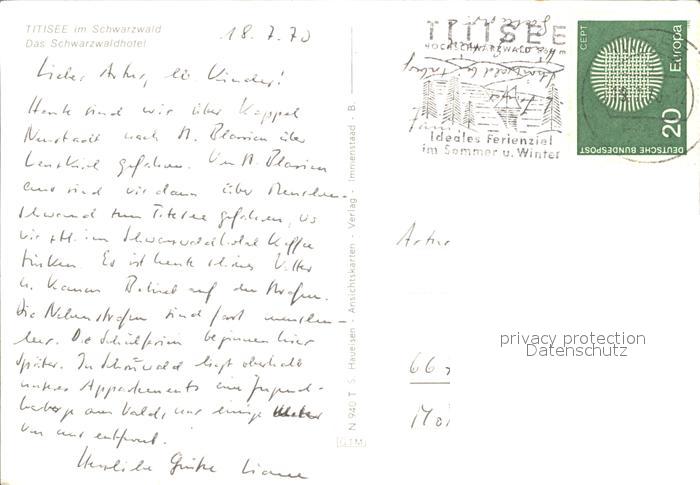 TITISEE im Schwarzwald
Das Schwarzwaldhotel
18.7.70
Lieber Artur, lb Kinder!
Heute sind wir über Kappel
Neustadt nach St. Blasien über
Lenzkirch gefahren. Von St. Blasien
aus sind wir dann über Menzen-
schwand zum Titisee gefahren, wo
wir z.Zt. im Schwarzwaldhotel Kaffee
trinken. Es ist heute schönes Wetter
u. kaum Betrieb auf den Straßen.
Die Nebenstraßen sind fast menschen-
leer. Die Schulferien beginnen hier
später. In Schönwald liegt oberhalb
unseres Appartements eine Jugend-
herberge am Wald, nur einige Meter
von uns entfernt.
Herzliche Grüße
N 940 T S. Haueisen - Ansichtskarten - Verlag - Immenstaad - B.
GTM
TITISEE
HOCHSCHWARZWALD
Ideales Ferienziel
im Sommer u. Winter
CEPT
Europa
20
DEUTSCHE BUNDESPOST
Artur
66
privacy protection
Datenschutz